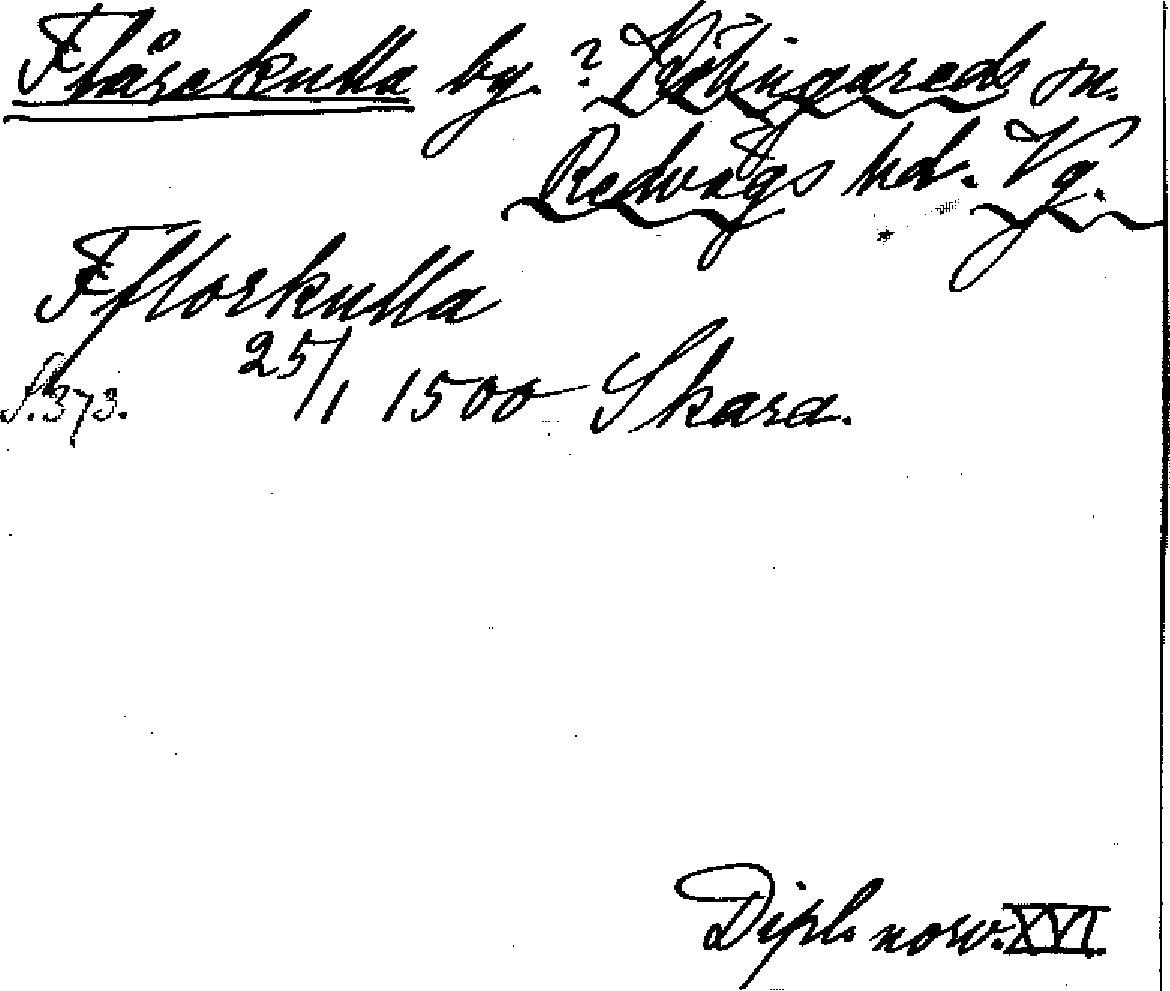 Flårekulla by. ? Kölingareds sn.
Redvägs hd. Vg.
Fflorkulla
S. 373. 25/1 1500 Skara.
Dipl. norv. XVI